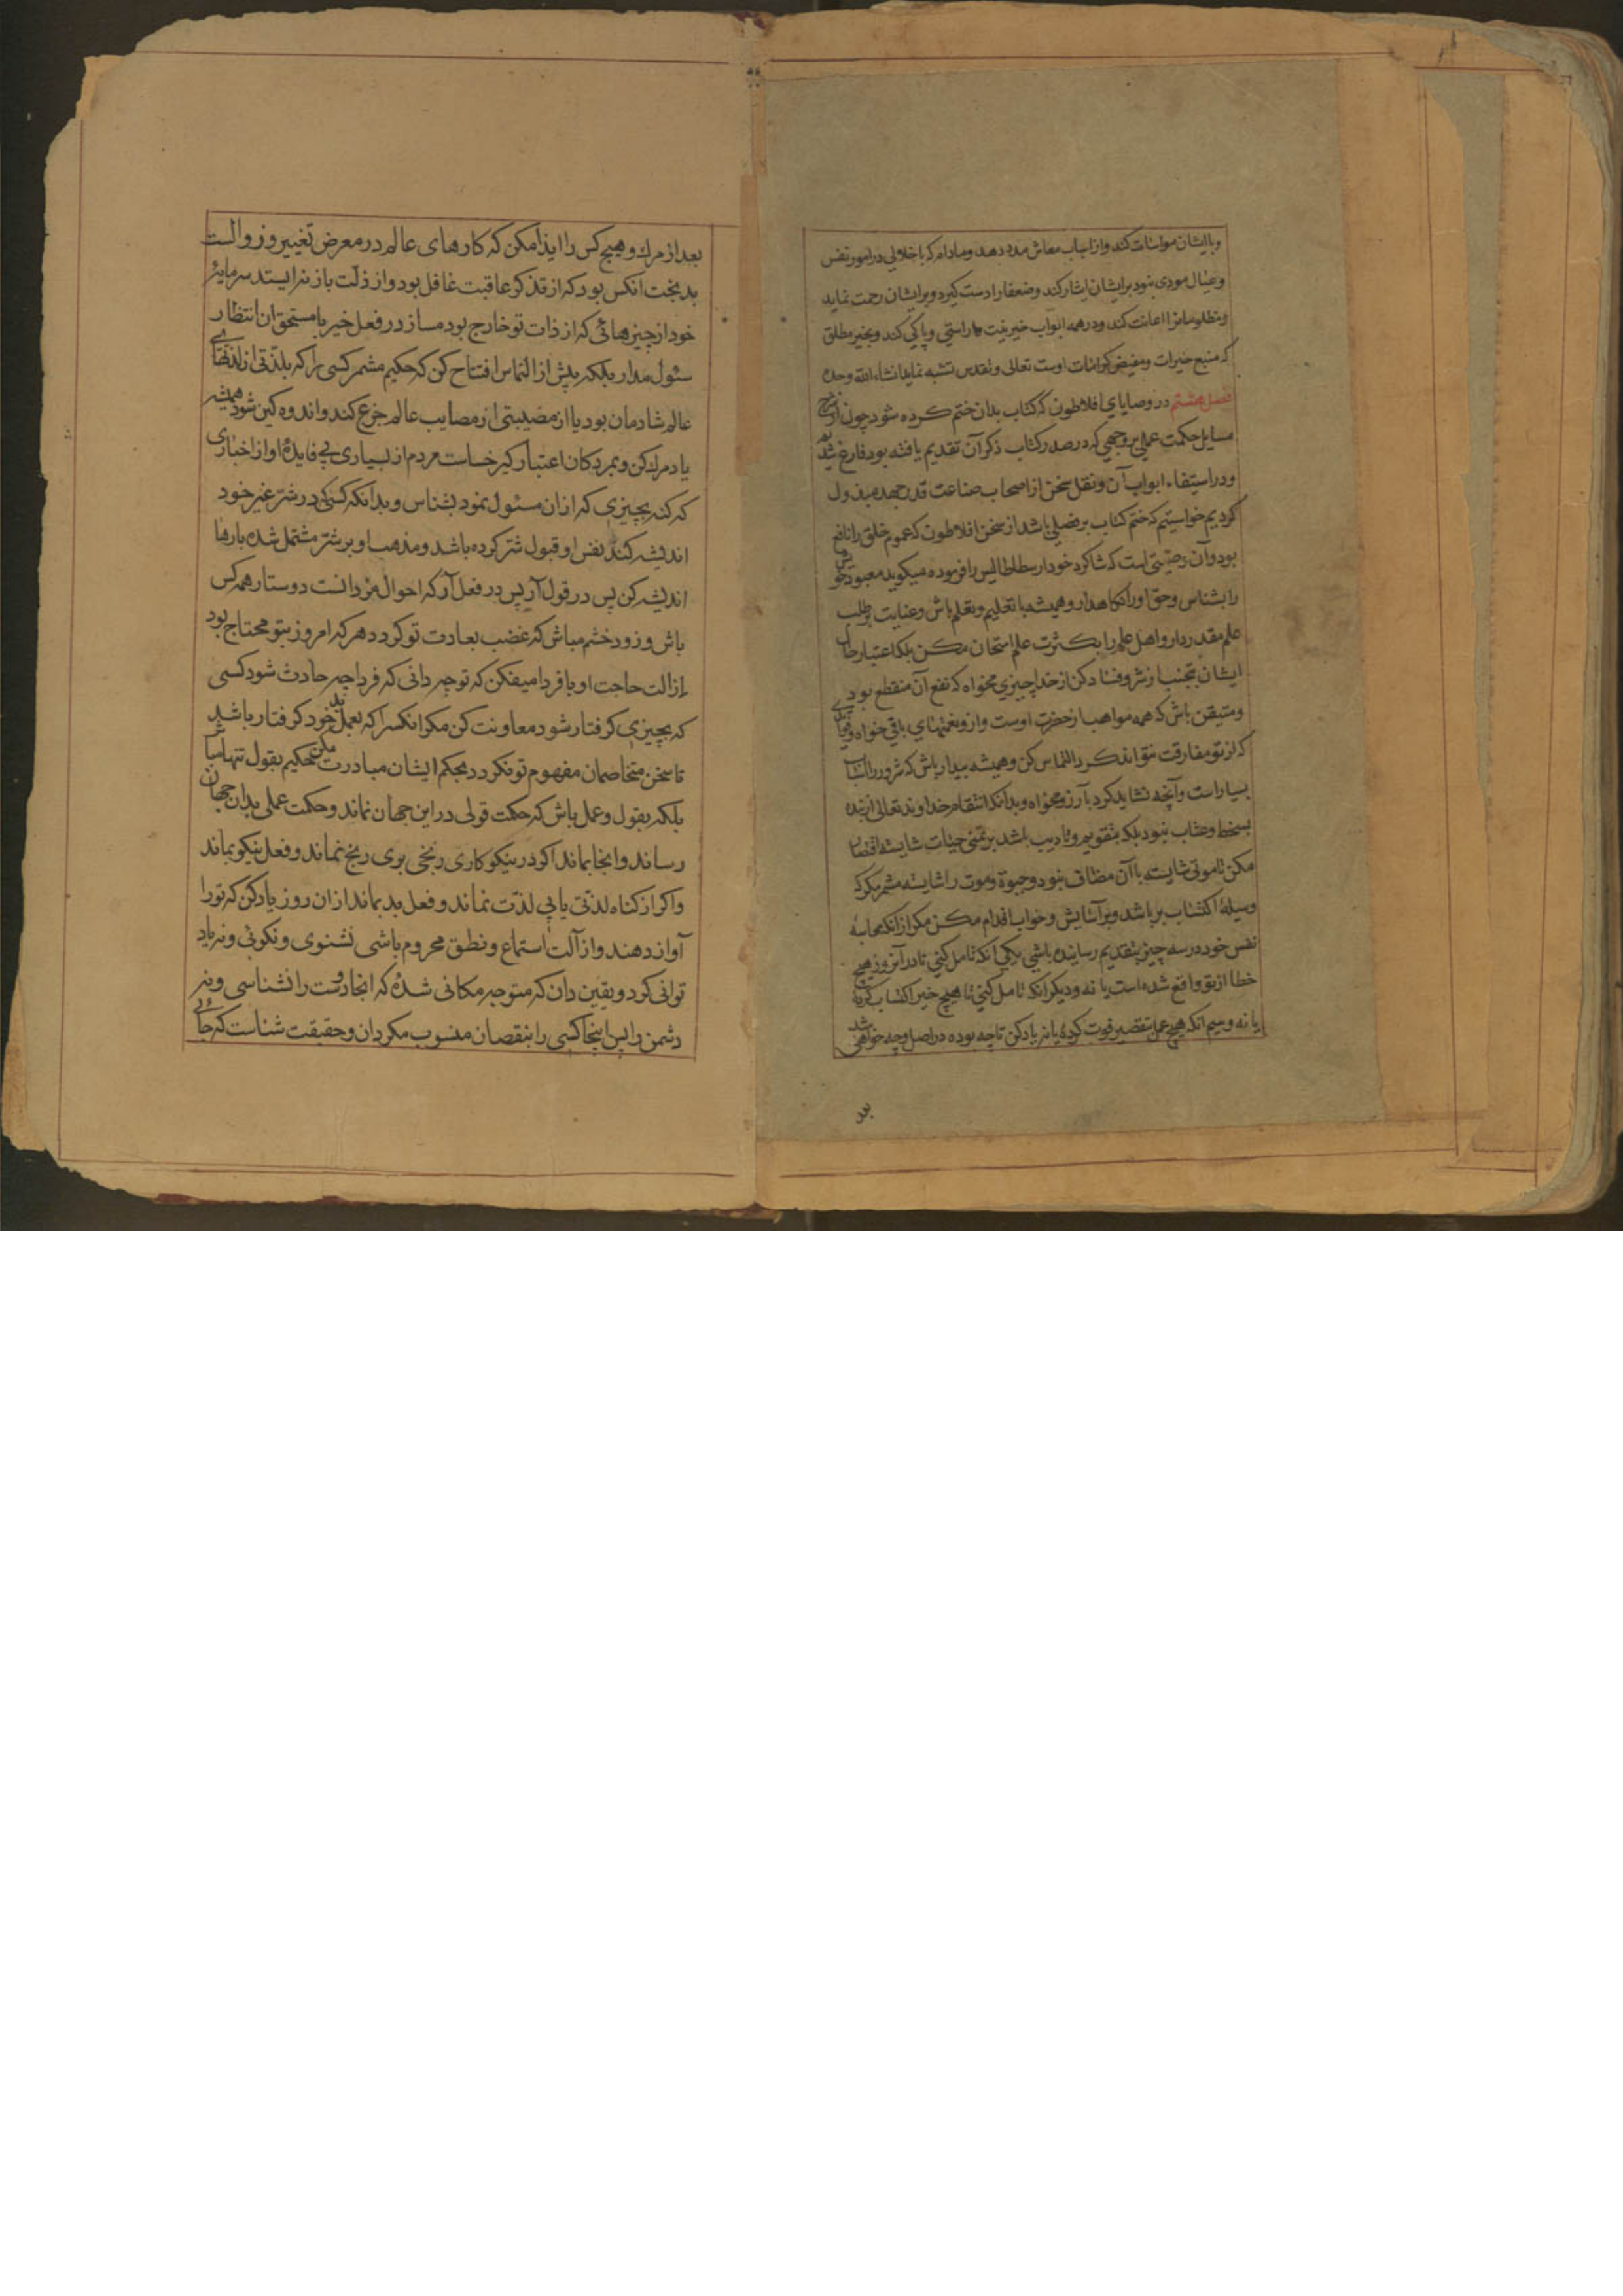 و با ایشان مواسات کند و از اسباب معاش مدد دهد و مادام که با خلالی در امور نفس
و عیال مودی نبود بر ایشان ایثار کند و ضعفا را دست کیرد و بر ایشان رحمت نماید
و مظلومانرا اعانت کند و در همه ابواب خیر نیت راستی و پاکی کند و بخیر مطلق
که منبع خیرات و مفیض کرامات اوست تعالی و تقدس تشبه نماید انشاء الله وحده
فصل هشتم در وصایای افلاطون که کتاب بدان ختم کرده شود چون از شرح
مسایل حکمت عملی بر وجهی که در صدر کتاب ذکر آن تقدیم یافته بود فارغ شدیم
و در استیفاء ابواب آن و نقل سخن از اصحاب صناعت قدر جهد مبذول
کردیم خواستیم که ختم کتاب بر فصلی باشد از سخن افلاطون که عموم خلق را نافع
بود و آن وصیتی است که شاکرد خود ارسطاطالیس را فرموده میکوید معبود خویش
را بشناس و حق او را نکاهدار و همیشه با تعلیم و تعلم باش و عنایت بر طلب
علم مقدر دار و اهل علم را بکثرت علم امتحان مکن بلکه اعتبار حال
ایشان بتجنب از شر و فساد کن از خدا چیزی مخواه که نفع آن منقطع بود
و متیقن باش که همه مواهب از حضرت اوست و ازو نعمتهای باقی خواه و فوایدی
که از تو مفارقت نتواند کرد التماس کن و همیشه بیدار باش که شرور را اسباب
بسیار است و آنچه نشاید کرد بآرزو مخواه و بدانکه انتقام خداوند تعالی از بنده
بسخط و عتاب نبود بلکه بتقویم و تادیب باشد بر تمنی حیات شایسته اقتصار
مکن تا موتی شایسته با آن مضاف نبود و حیوة و موت را شایسته مشمر مکر که
وسیلهٔ اکتساب بر باشد و بر آسایش و خواب اقدام مکن مکر از انکه محاسبهٔ
نفس خود در سه چیز بتقدیم رسانیده باشی یکی انکه تامل کنی تا در آنروز هیچ
خطا از تو واقع شده است یا نه و دیکر انکه تامل کنی تا هیچ خیر اکتساب کردهٔ
یا نه و سیم انکه هیچ عمل بتقصیر فوت کردهٔ یا نه یاد کن تا چه بوده در اصل و چه خواهی شد
بعد
بعد از مرك و هیچ کس را ایذا مکن که کارهای عالم در معرض تغییر و زوالست
بدبخت آنکس بود که از تذکر عاقبت غافل بود و از ذلت باز نه ایستد سرمایهٔ
خود از چیزهائی که از ذات تو خارج بود مساز در فعل خیر با مستحقان انتظار
سئول مدار بلکه پیش از التماس افتتاح کن که حکیم مشمر کسی را که بلذتی از لذتهای
عالم شادمان بود یا از مصیبتی از مصایب عالم جزع کند و اندوه کین شود همیشه
یاد مرك کن و بمردکان اعتبار کیر خساست مردم از بسیاری بی فایدهٔ او از اخباری
که کند بچیزی که ازان مسئول نبود بشناس و بدانکه کسی که در شر غیر خود
اندیشه کند نفس او قبول شر کرده باشد و مذهب او بر شر مشتمل شده بارها
اندیشه کن پس در قول آر پس در فعل آر که احوال کردانست دوستار همه کس
باش و زود خشم مباش که غضب بعادت تو کردد هر که امروز بتو محتاج بود
ازالت حاجت او با فردا میفکن که تو چه دانی که فردا چه حادث شود کسی
که بچیزی کرفتار شود معاونت کن مکر آنکس را که بعمل بد خود کرفتار باشد
تا سخن متخاصمان مفهوم تو نکردد بحکم ایشان مبادرت مکن حکیم بقول تنها مباش
بلکه بقول و عمل باش که حکمت قولی در این جهان نماند و حکمت عملی بدان جهان
رساند و انجا بماند اکر در نیکو کاری رنجی بری رنج نماند و فعل نیکو بماند
و اکر از کناه لذتی یابی لذت نماند و فعل بد بماند از ان روز یاد کن که تو را
آواز دهند و از آلت استماع و نطق محروم باشی نشنوی و نکوئی و نه یاد
توانی کرد و یقین دان که متوجه مکانی شدهٔ که انجا دوست را نشناسی و نه
دشمن را پس اینجا کسی را بنقصان منسوب مکردان و حقیقت شناس که جائی